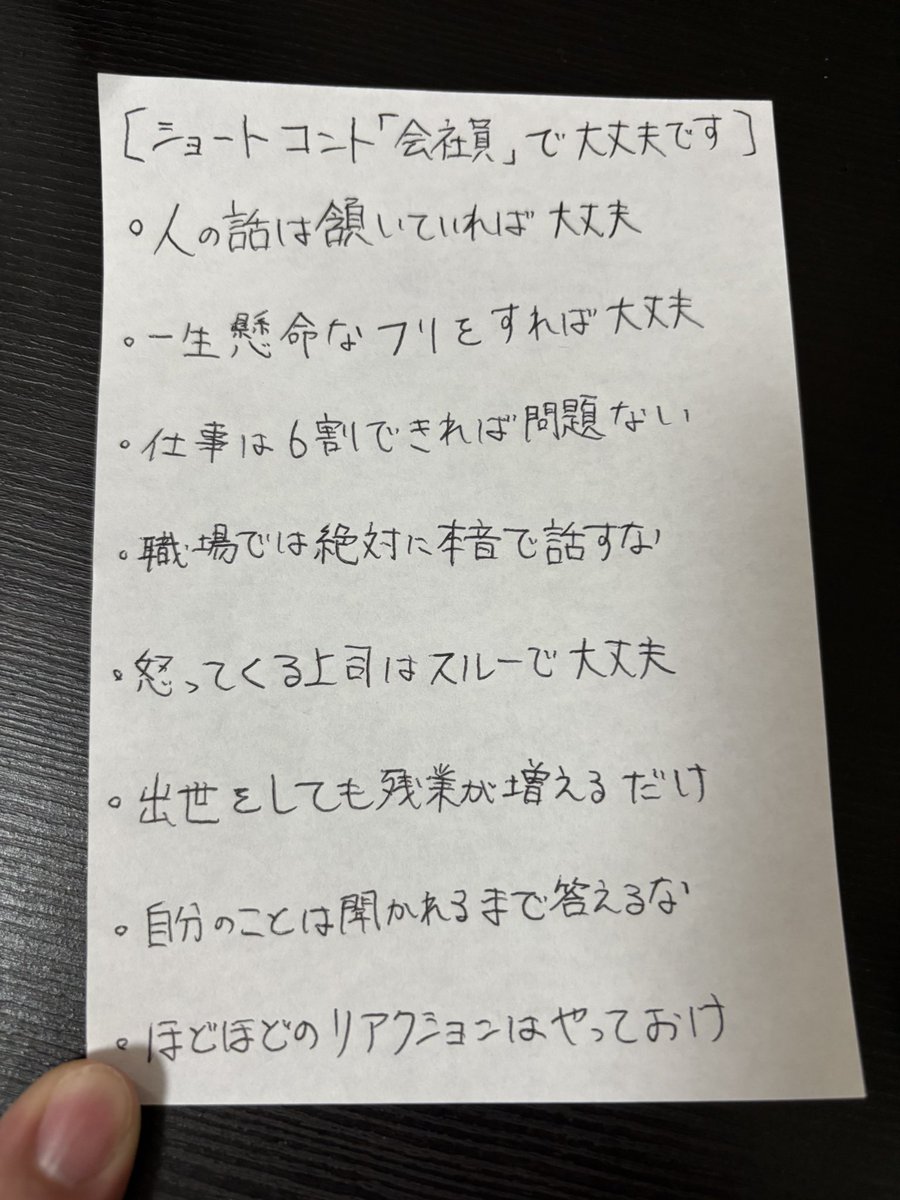 [ショートコント「会社員」で大丈夫です]
。人の話は頷いていれば大丈夫
。一生懸命なフリをすれば大丈夫
。仕事は6割できれば問題ない
。職場では絶対に本音で話すな
。怒ってくる上司はスルーで大丈夫
。出世をしても残業が増えるだけ
。自分のことは聞かれるまで答えるな
。ほどほどのリアクションはやっておけ